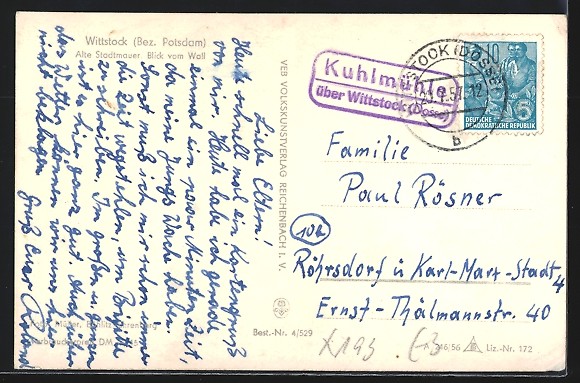 Wittstock (Bez. Potsdam)
Alte Stadtmauer. Blick vom Wall
Liebe Eltern!
Heute schnell mal ein Kartengruß
von mir. Heute habe ich gerade
einmal ein paar Minuten Zeit,
da mein Jungs Wache haben.
Sonst muß ich mir schon immer
die Zeit wegstehlen, um Brigitte
zu schreiben. Im großen u. ganzen
ist es hier ganz gut. Auch über
das Wetter können wir uns
nicht beklagen.
Gruß Euer Roland
VEB VOLKSKUNSTVERLAG REICHENBACH I. V.
Best.-Nr. 4/529
Kuhlmühle
über Wittstock (Dosse)
b
10
5
DEUTSCHE
DEMOKRATISCHE REPUBLIK
Familie
Paul Rösner
10b
Röhrsdorf ü. Karl-Marx-Stadt 4
Ernst-Thälmannstr. 40
246/56 Liz.-Nr. 172